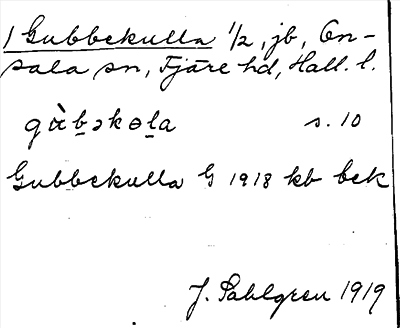 1 Gubbekulla 1/2, jb, On-
sala sn, Fjäre hd, Hall. l.
gàb̠əkɵl̠a s. 10
Gubbekulla G 1918 kb bek
J. Sahlgren 1919